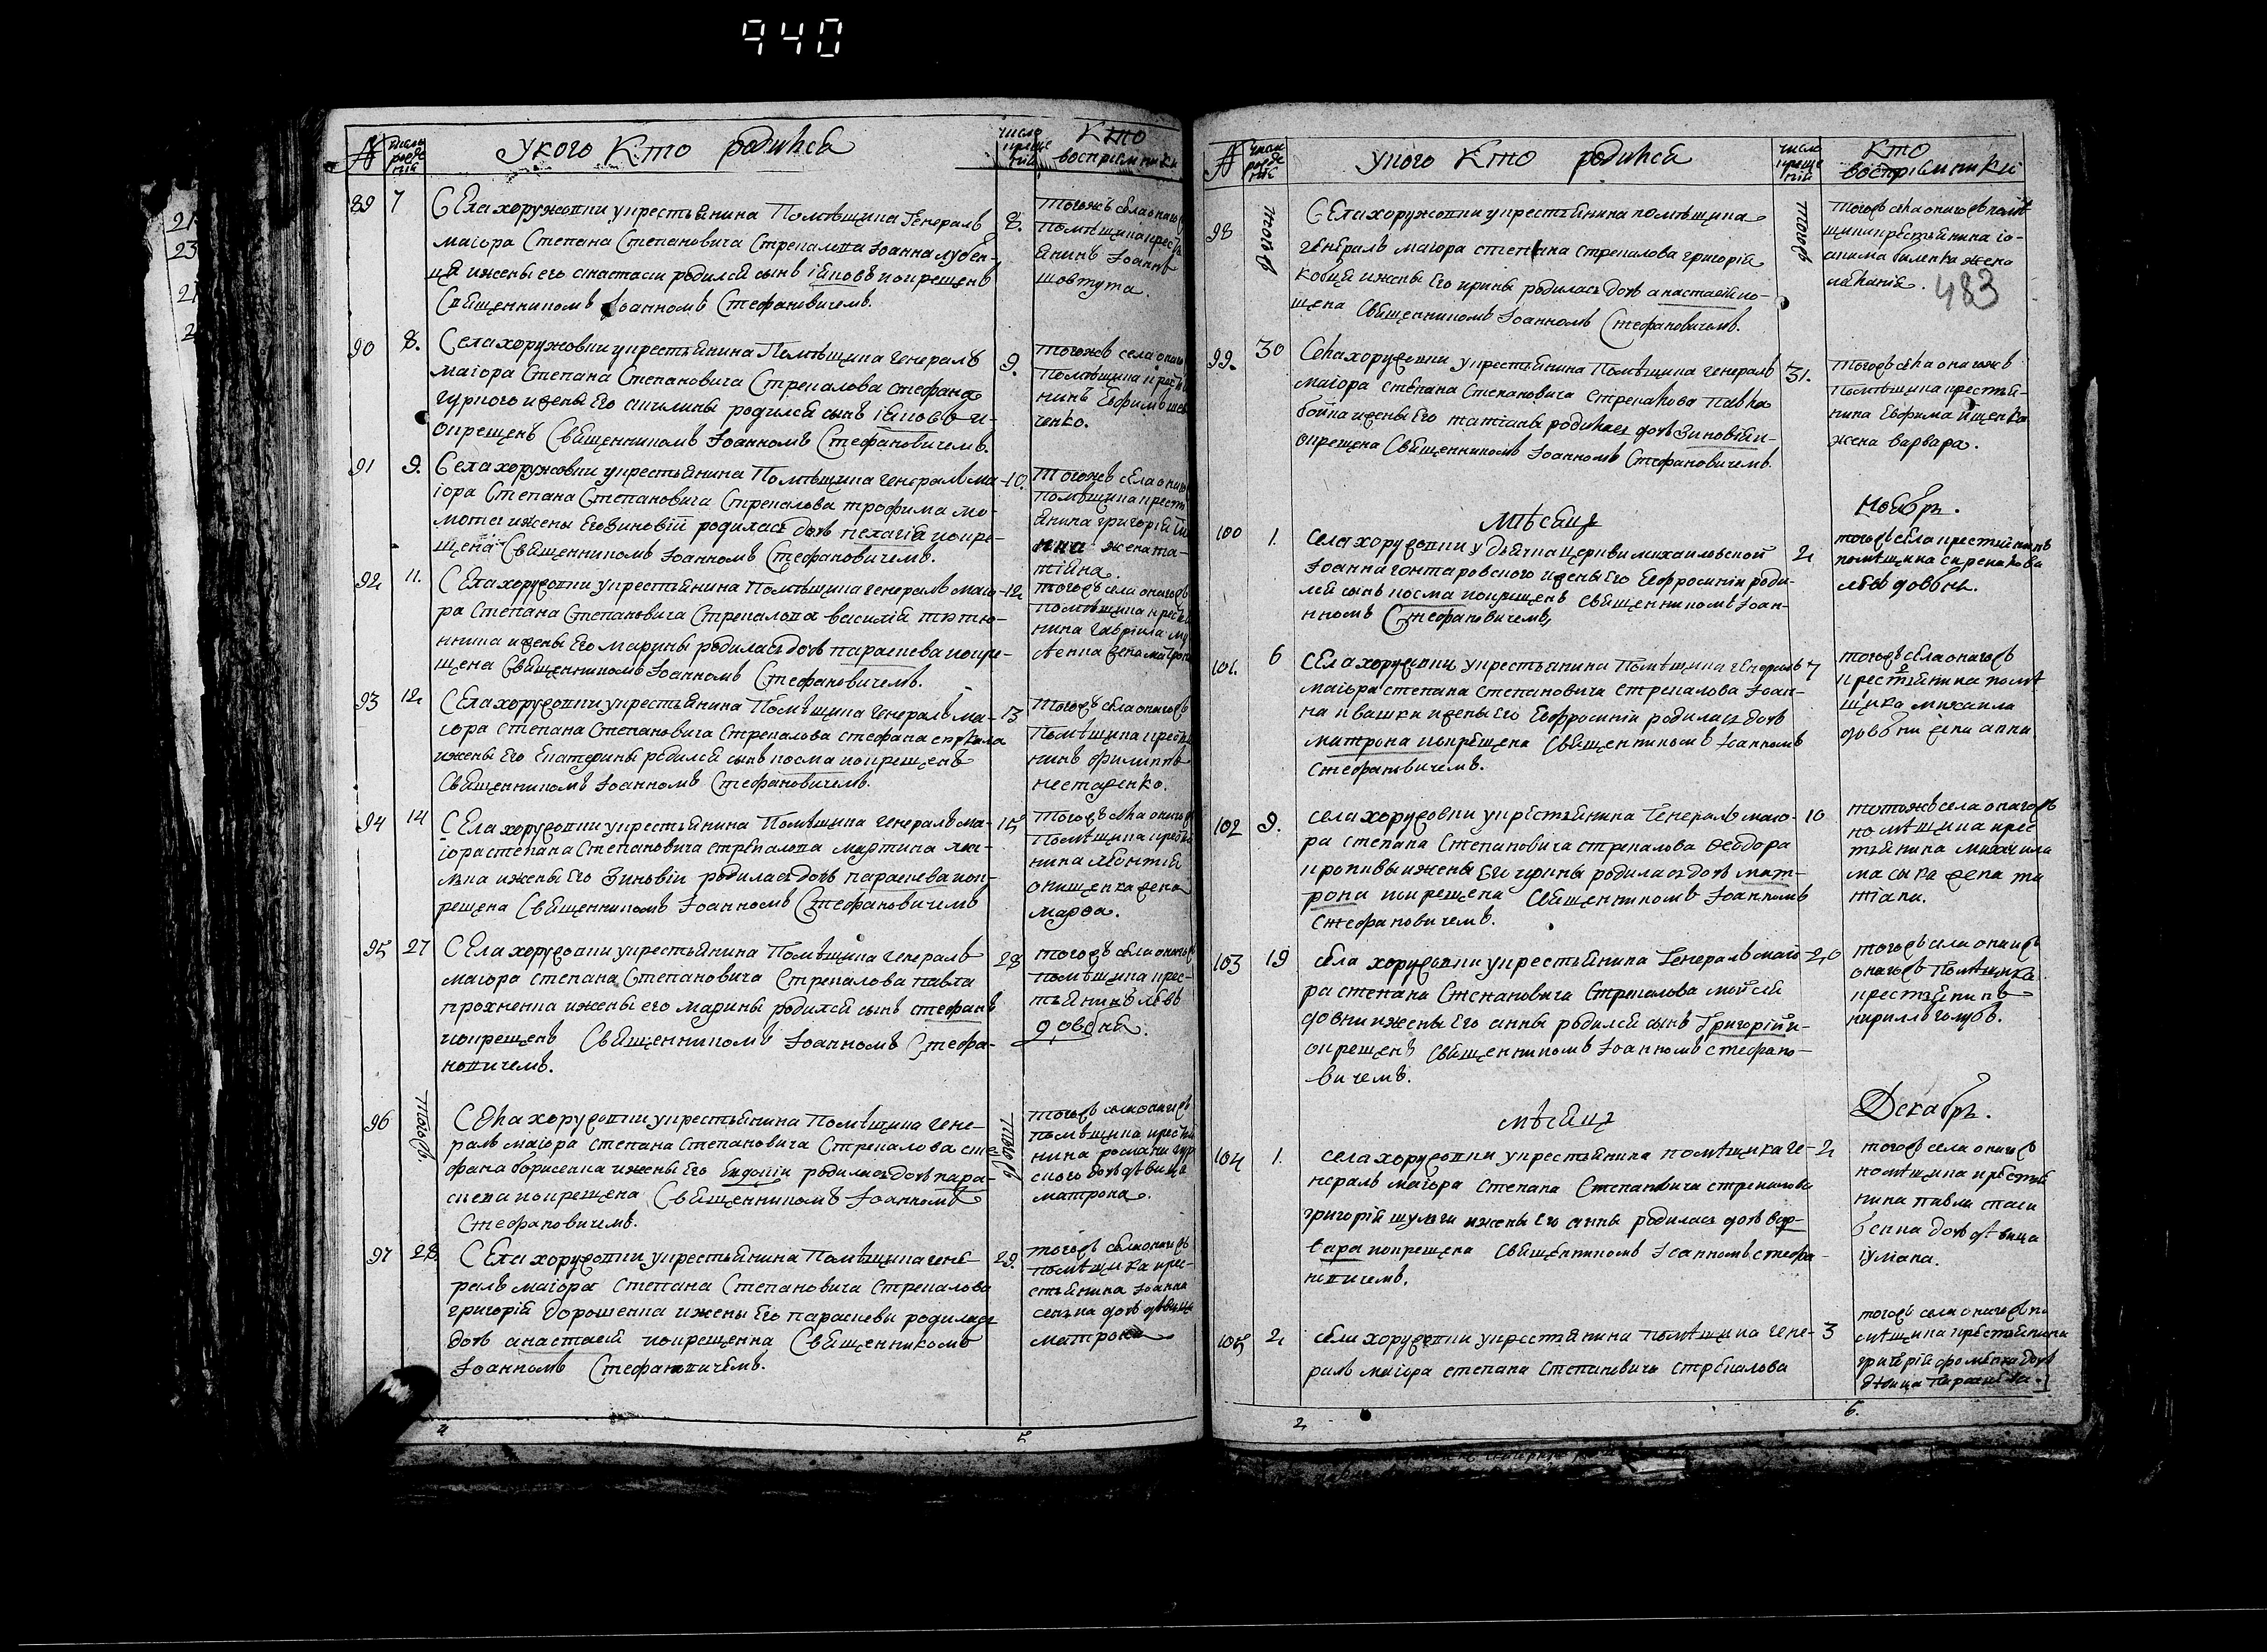 940
№ число рожде ній
У кого Кто родился
число креще ній
Кто восприемники
89 7 Села хоружовки у крестьянина Помѣщика Генералъ 8.
маіора Степана Степановича Стрекалова Іоанна лубен-
ця и жены его анастасіи родился сынъ іяковъ и окрещенъ
Священникомъ Іоанномъ Стефановичемъ.
тогожъ села оногожъ
Помѣщика крестья
янинъ Іоаннъ
шовтута.
90 8. Села хоружовки у крестьянина Помѣщика генералъ 9.
маіора Степана Степановича Стрекалова стефана
гурного и жены его акилины родился сынъ іяковъ и-
окрещенъ Священникомъ Іоанномъ Стефановичемъ.
тогожъ села оного
Помѣщика крестья
нинъ Ефимъ
ченко.
91 9. Села хоружовки у крестьянина Помѣщика генералъ ма- 10.
іора Степана Степановича Стрекалова трофима мо-
мота и жены его зиновіи родилась дочь пелагія и окре-
щена Священникомъ Іоанномъ Стефановичемъ.
тогожъ села оного
помѣщика крест
янина григорія
жена та-
тіяна.
92 11. Села хоружовки у крестьянина Помѣщика генералъ маіо- 12
ра Степана Степановича Стрекалова василія
и жены его марины родилась дочь параскева и окре-
щена Священникомъ Іоанномъ Стефановичемъ.
тогожъ села оногожъ
помѣщика крестья
нина гавріила
жена матрона
93 12 Села хоружовки у крестьянина Помѣщика генералъ ма- 13
іора Степана Степановича Стрекалова стефана
и жены его екатерины родился сынъ косма и окрещенъ
Священникомъ Іоанномъ Стефановичемъ.
тогожъ села оногожъ
Помѣщика крестья
нинъ филиппъ
нестеренко.
94 14 Села хоружовки у крестьянина Помѣщика генералъ ма- 15
іора степана Степановича стрекалова мартина
и жены его Зиновіи родилась дочь параскева и ок-
рещена Священникомъ Іоанномъ Стефановичемъ
тогожъ села оногожъ
Помѣщика крестья
нина леонтія
онищенка жена
марфа.
95 27 Села хоружовки у крестьянина Помѣщика генералъ 28
маіора степана Степановича Стрекалова павла
прохненка и жены его марины родился сынъ стефанъ
и окрещенъ Священникомъ Іоанномъ Стефа-
новичемъ.
тогожъ села оногожъ
помѣщика крес-
тьянинъ левъ
довбня.
96 тогожъ Села хоружовки у крестьянина Помѣщика гене- тогожъ
ралъ маіора степана Степановича Стрекалова сте
фана борисенка и жены его Евдокіи родилась дочь пара-
скева и окрещена Священникомъ Іоанномъ
Стефановичемъ.
тогожъ села оногожъ
помѣщика крестья
нина романа гур
ского дочь дѣвица
матрона.
97 28 Села хоружовки у крестьянина Помѣщика гене- 29.
ралъ маіора Степана Степановича Стрекалова
григорія дорошенка и жены его параскеви родилась
дочь анастасія и окрещенна Священникомъ
Іоанномъ Стефановичемъ.
тогожъ села оногожъ
помѣщика крес-
стьянина Іоанна
дочь дѣвица
матрона
№ число рожде ній
У кого Кто родился
число креще ній
Кто восприемники
98 тогожъ Села хоружовки у крестьянина помѣщика тогожъ
генералъ маіора степана стрекалова григорія
и жены его ирины родилась дочь анастасія и окре-
щена Священникомъ Іоанномъ Стефановичемъ.
тогожъ села оногожъ помѣ
щика крестьянина іо-
жена
483
99. 30 Села хоружовки у крестьянина Помѣщика генералъ 31.
маіора степана Степановича стрекалова павла
бойка и жены его татіаны родилась дочь зиновія и-
окрещена Священникомъ Іоанномъ Стефановичемъ.
тогожъ села оногожъ
Помѣщика крестья-
нина Евфима ищенка
жена варвара.
мѣсяцъ Ноябрь.
100 1. села хоружовки у дьячка церкви михаиловской 2
Іоанна гонтаровского и жены его Ефросиніи роди-
лся сынъ косма и окрещенъ священникомъ Іоан-
номъ Стефановичемъ,
тогожъ села крестьянинъ
помѣщика стрекалова
левъ довбня.
101. 6 села хоружовки у крестьянина Помѣщика генералъ 7
маіора степана степановича стрекалова Іоан-
на ивашки и жены его Ефросиніи родилась дочь
матрона и окрещена Священникомъ Іоанномъ
Стефановичемъ.
тогожъ села оногожъ
крестьянина помѣ
щика михаила
довбни жена анна
102 9. села хоружовки у крестьянина Генералъ маіо- 10
ра степана Степановича стрекалова феодора
кропивы и жены его ирины родилась дочь мат-
рона и окрещена Священникомъ Іоанномъ
Стефановичемъ.
тогожъ села оногожъ
помѣщика крес
тьянина михаила
жена та
тіана.
103 19 села хоружовки у крестьянина Генералъ маіо- 20
ра степана Степановича Стрекалова мойсея
довни и жены его анны родился сынъ Григорій и-
окрещенъ Священникомъ Іоанномъ стефано-
вичемъ.
тогожъ села
оногожъ помѣщика
крестьянинъ
кирилло голубъ.
мѣсяцъ Декабрь.
104 1. села хоружовки у крестьянина помѣщика ге- 2
нералъ маіора степана Степановича стрекалова
григорія шульги и жены его анны родилась дочь вар-
вара и окрещена Священникомъ Іоанномъ стефа-
новичемъ.
тогожъ села оногожъ
помѣщика крестья
нина павла
дочь дѣвица
іуліана.
105 2 села хоружовки у крестьянина помѣщика гене- 3
ралъ маіора степана Степановича стрекалова
тогожъ села оногожъ по
мѣщика крестьянина
григорія фоменка дочь
дѣвица параскева.